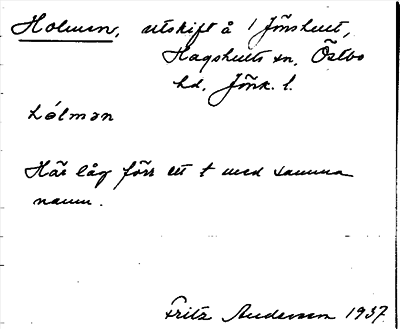 Holmen, utskift å 1 Jönshult,
Hagshults sn, Östbo
hd, Jönk. l.
hólmən
Här låg förr ett t med samma
namn.
Fritz Andersson 1937